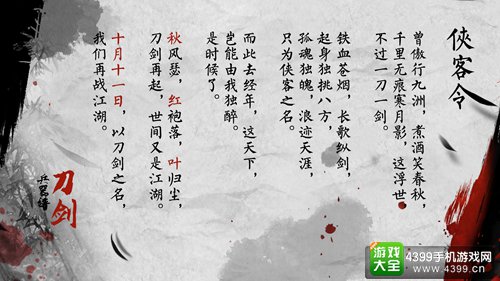 侠客令
曾傲行九洲，煮酒笑春秋，
千里无痕寒月影，这浮世
不过一刀一剑。
铁血苍烟，长歌纵剑，
起身独挑八方，
孤魂独魄，浪迹天涯，
只为侠客之名。
而此去经年，这天下，
岂能由我独醉。
是时候了。
秋风瑟，红袍落，叶归尘，
刀剑再起，世间又是江湖。
十月十一日，以刀剑之名，
我们再战江湖。
刀剑
兵器谱
游戏大全
4399手机游戏网
www.4399.cn